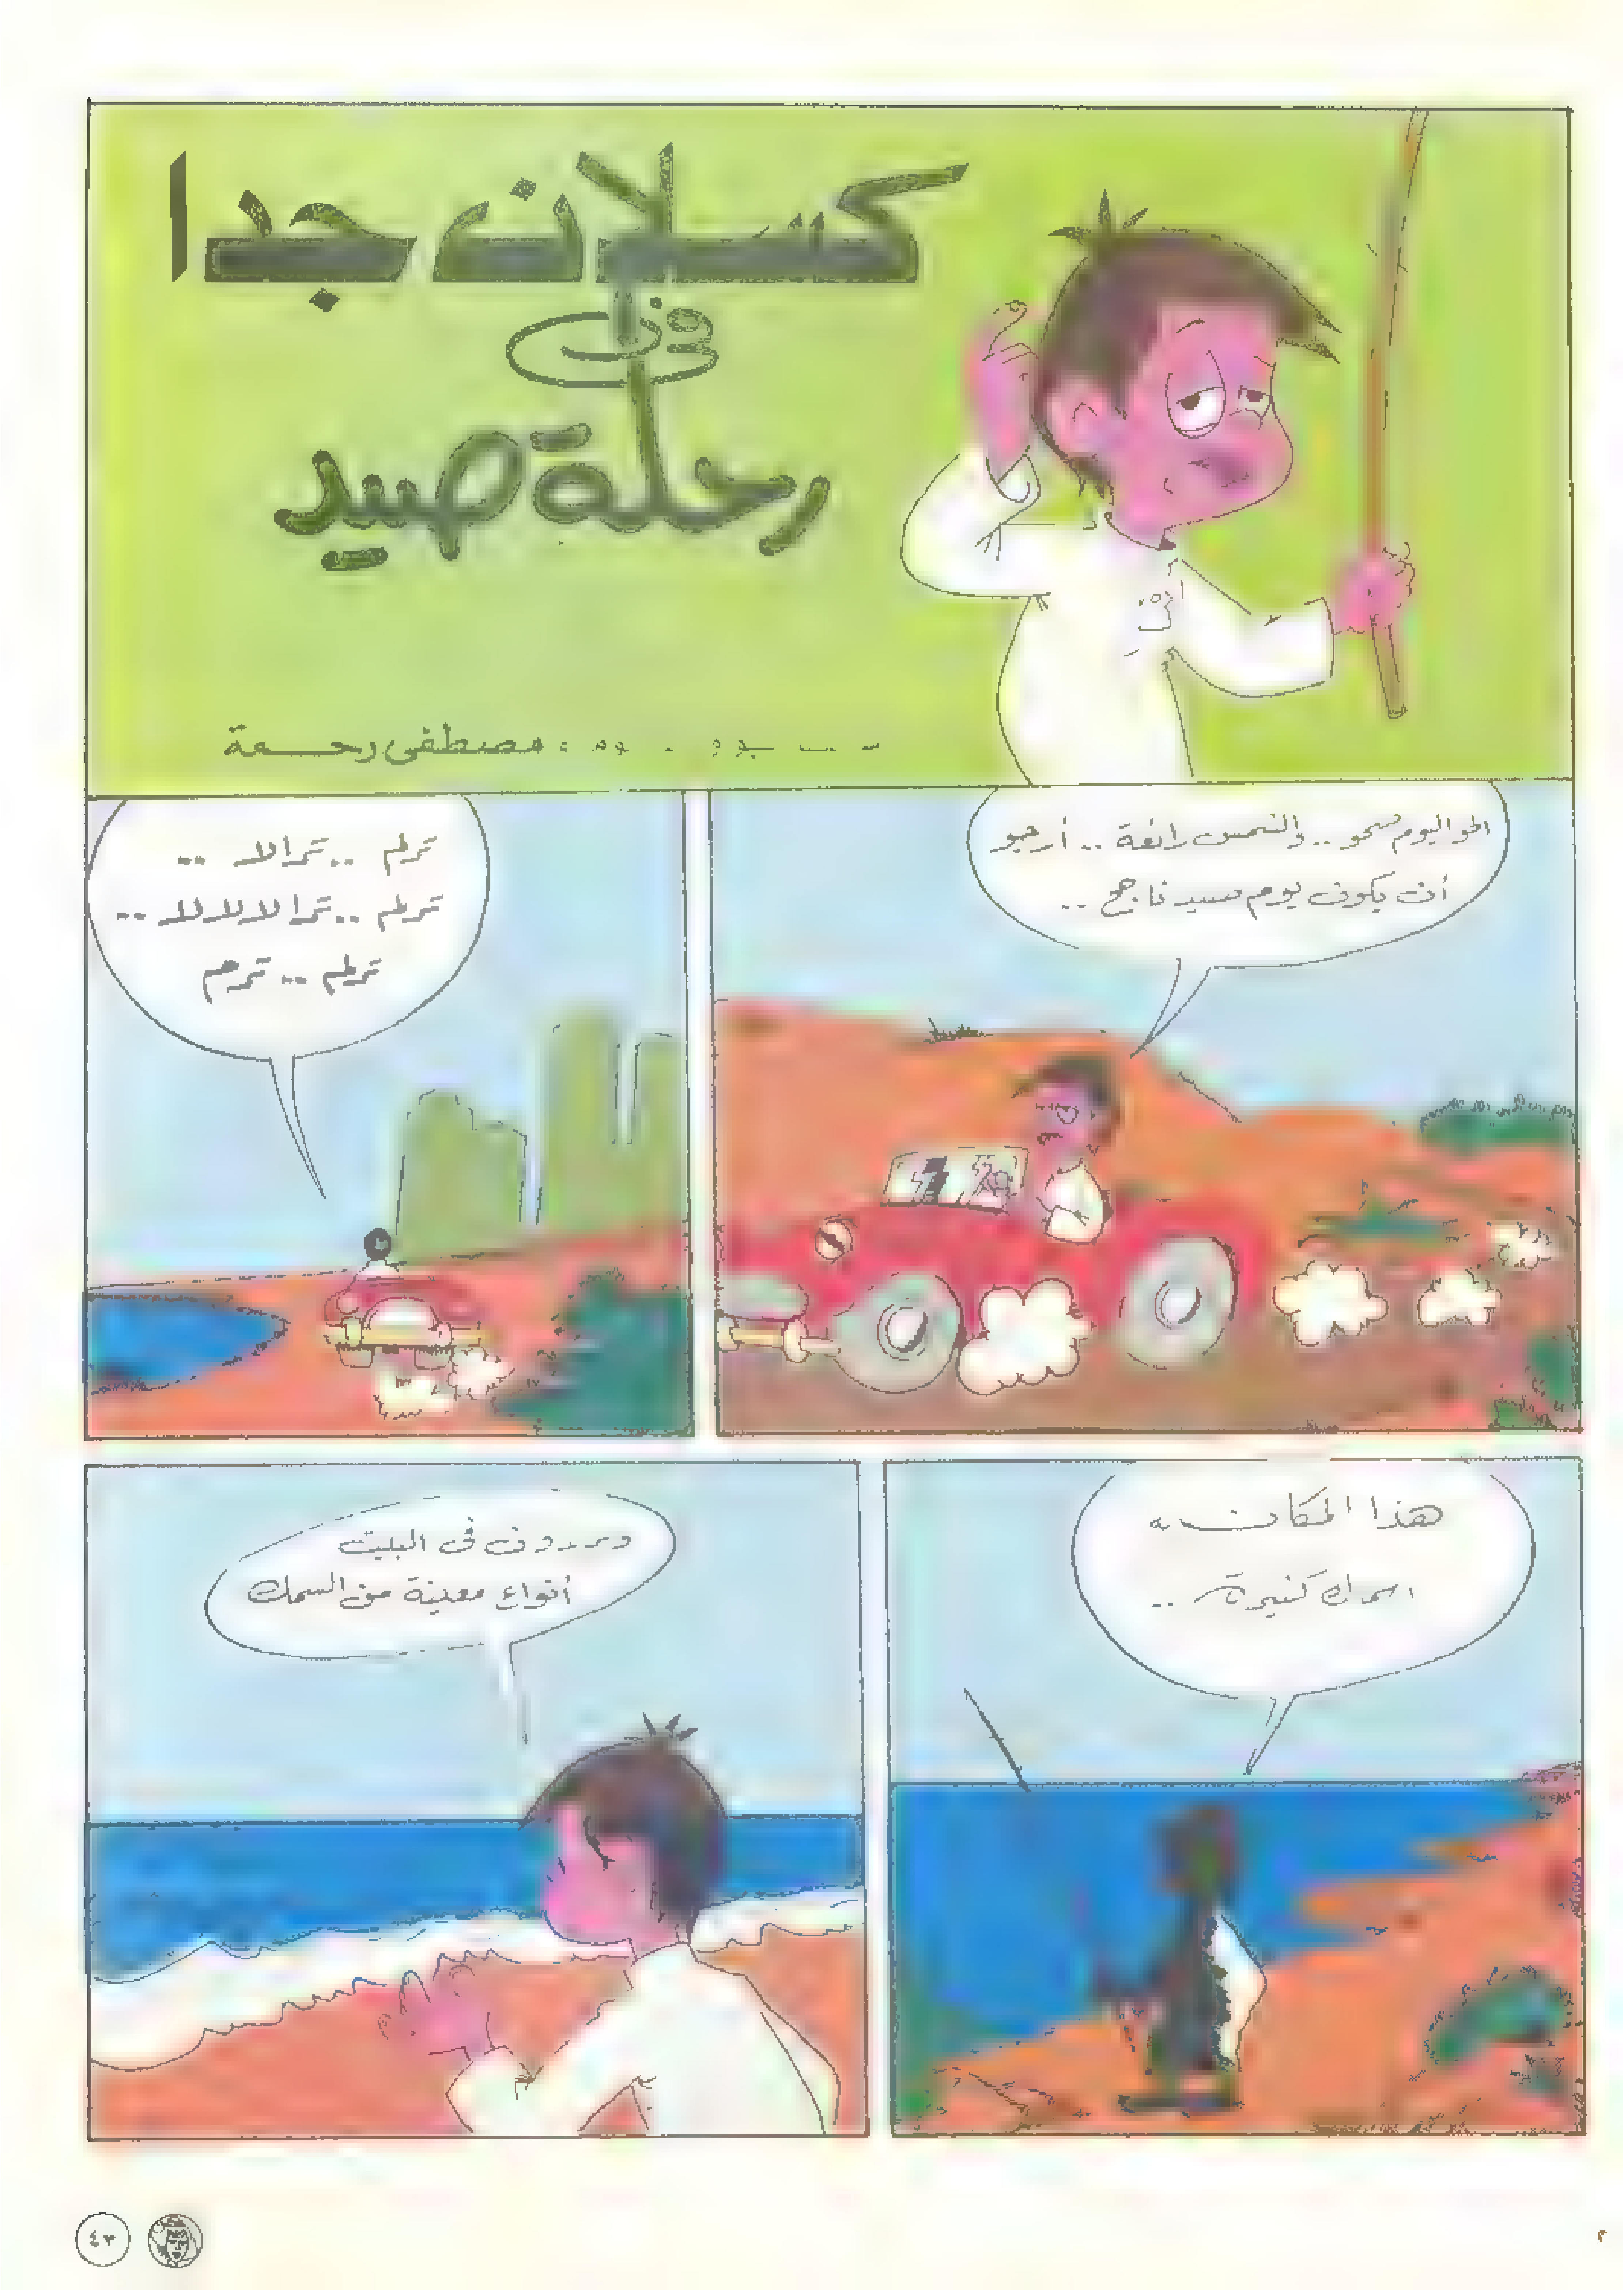 كسلان جدا
في
رحلة صيد
مصطفى رحمة
الجو اليوم صحو .. والشمس رائعة .. أرجو
أن يكون يوم صيد ناجح ..
ترلم .. ترالا ..
ترلم .. ترا لا للا للا ..
ترلم .. ترم
هذا المكان به
اسماك كثيرة ..
في البيت
أنواع معينة من السمك
٤٣